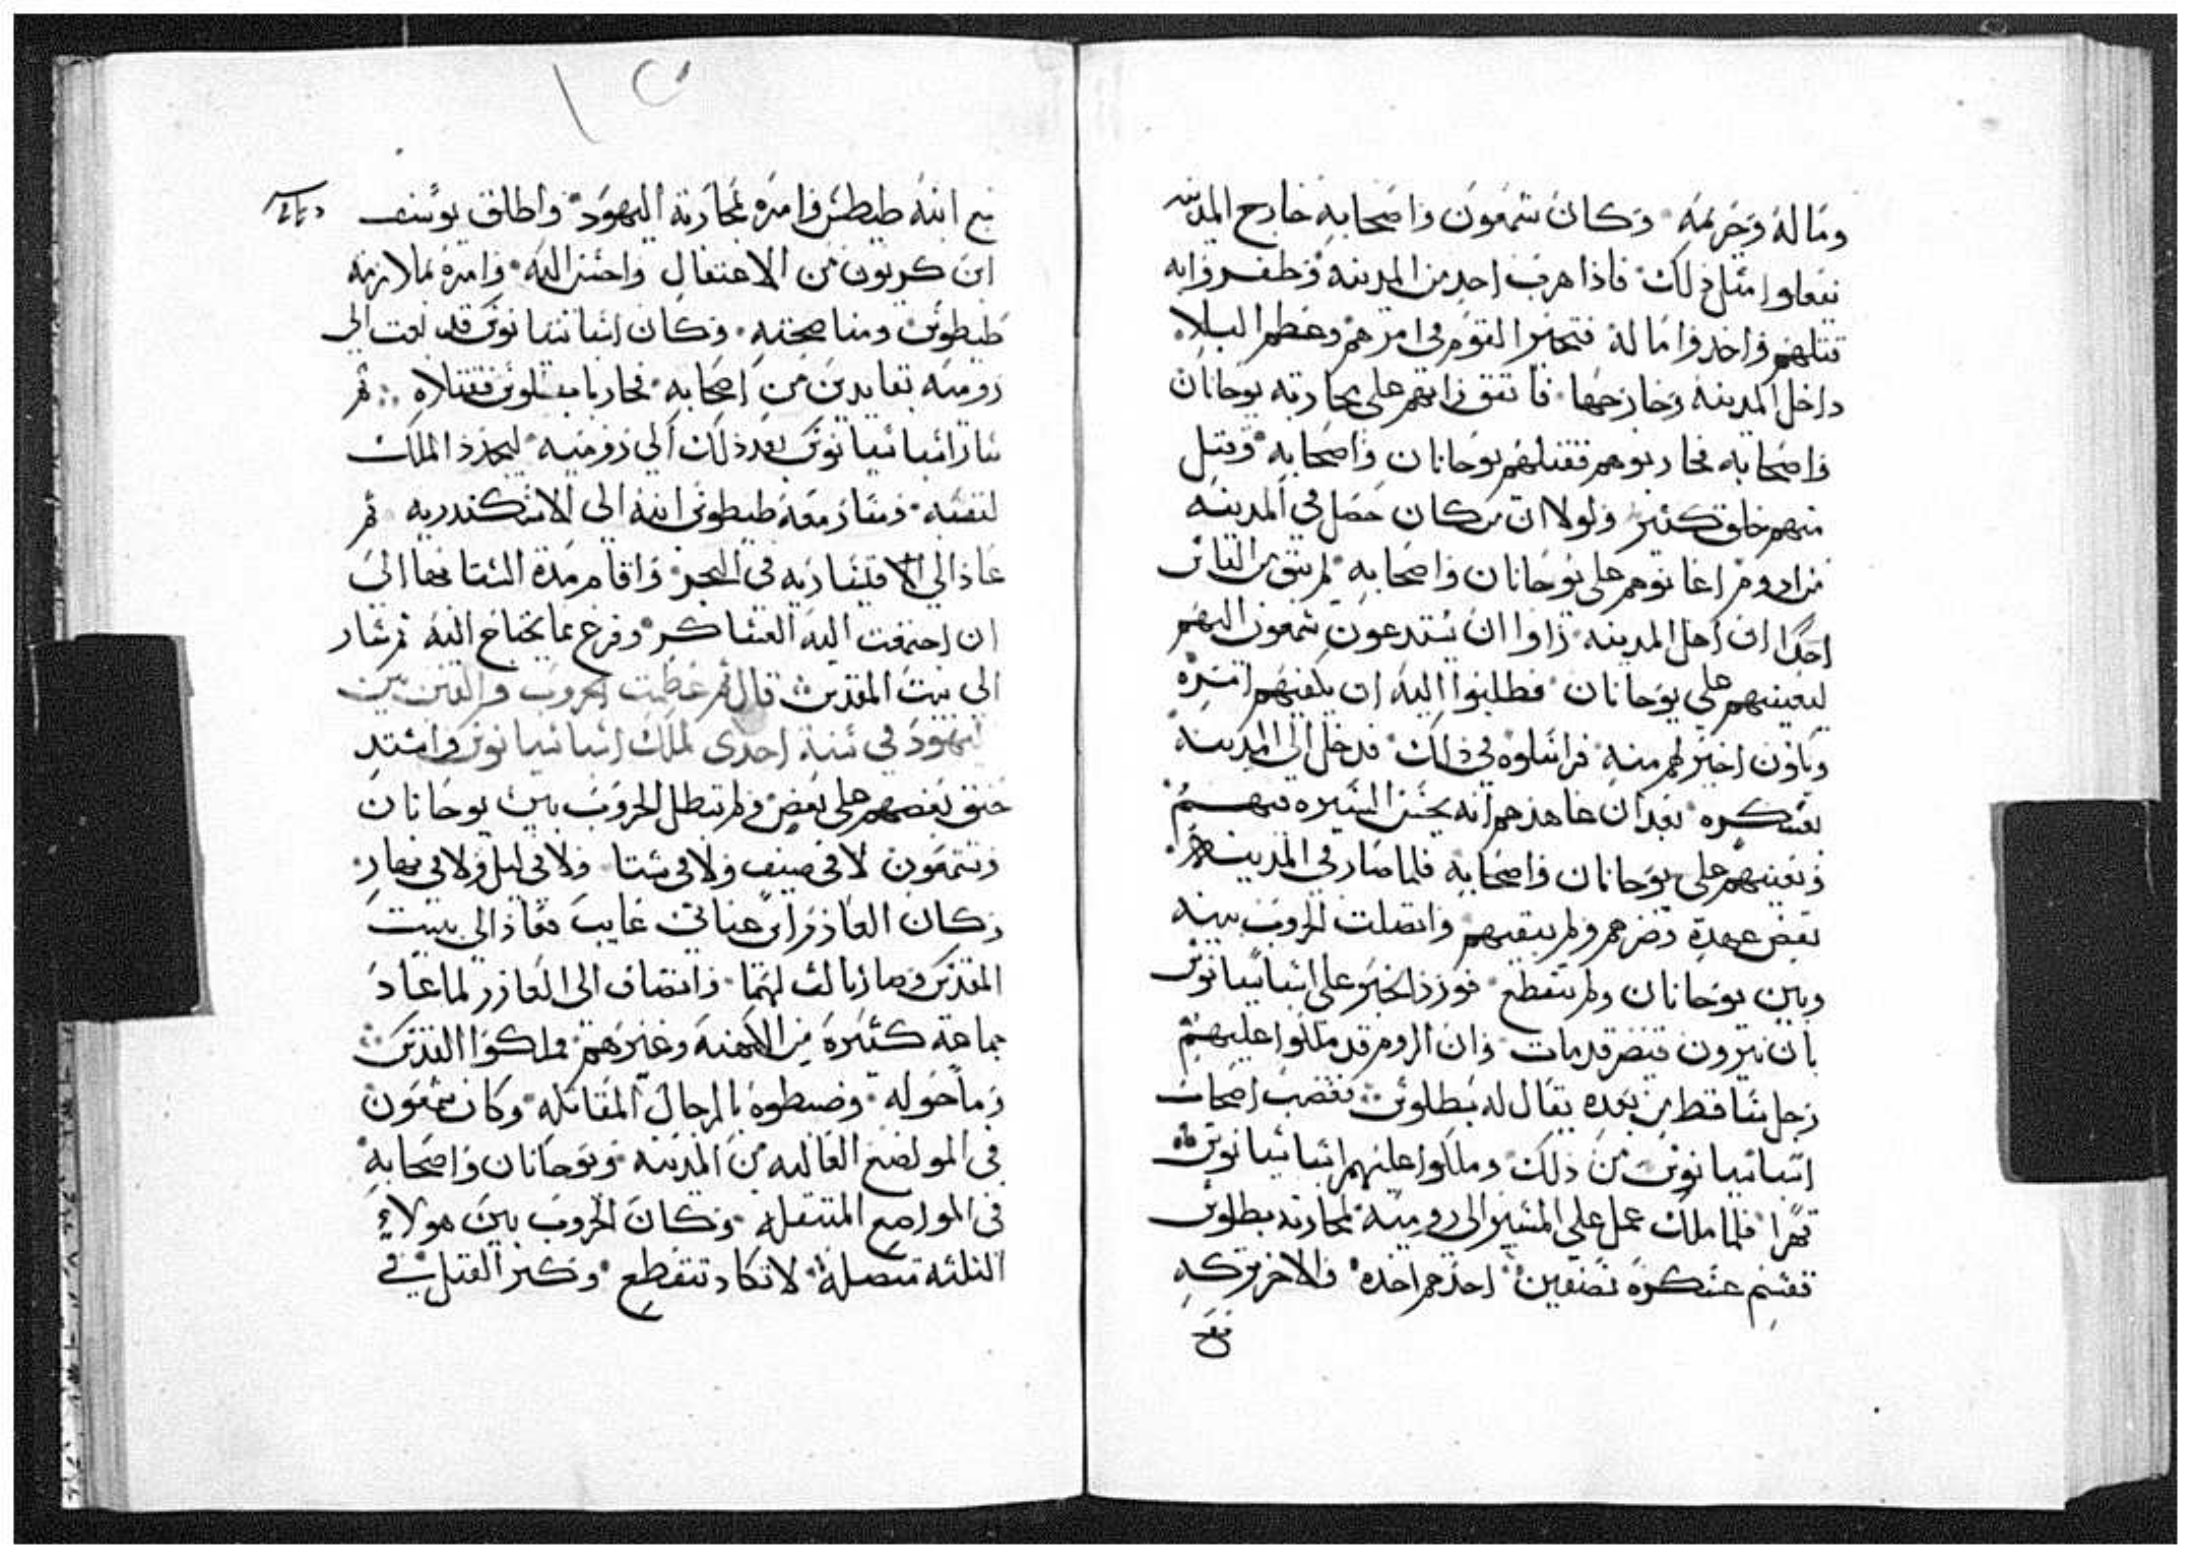 وماله وحريمه وكان شمعون واصحابه خارج المدينه
يفعلوا مثل ذلك فاذا هرب احد من المدينه وظفروا به
قتلهم واخدوا ماله فتحير القوم في امرهم وعظم البلا
داخل المدينه وخارجها فاتفق رايهم على محاربة يوحانان
واصحابه فحاربوهم فقتلهم يوحانان واصحابه وقتل
منهم خلق كثير ولولا ان من كان حصل في المدينه
من ادوم اعانوهم على يوحانان واصحابه لم يبق من الناس
احدا ان اهل المدينه راوا ان يستدعون شمعون اليهم
ليعينهم على يوحانان فطلبوا اليه ان يكفيهم امره
ويكون اخير لهم منه فراسلوه في ذلك فدخل الى المدينه
بعسكره بعد ان عاهدهم انه يحسن السيره فيهم
ويعينهم على يوحانان واصحابه فلما صار في المدينه
نقض عهده وضرهم ولم يبقيهم واتصلت الحروب بينه
وبين يوحانان ولم تنقطع فورد الخبر على اسباسيانوس
بان نيرون قيصر قد مات وان الروم قد ملكوا عليهم
رجل ساقط من بعده يقال له بيطلوس فغضب اصحاب
اسباسيانوس من ذلك وملكوا عليهم اسباسيانوس
قهرا فلما ملك عمل على المسير الى روميه لمحاربة بطلوس
فقسم عسكره نصفين احدهم اخده والاخر تركه
مع
مع ابنه طيطس وامره بمحاربة اليهود واطلق يوسف
ابن كريون من الاعتقال واحسن اليه وامره بملازمة
طيطوس ومناصحته وكان اسباسيانوس قد بعت الى
روميه بقايدين من اصحابه فحاربا بيطلوس فقتلاه ثم
سار اسباسيانوس بعد ذلك الى روميه ليحدد الملك
لنفسه وسار معه طيطوس ابنه الى الاسكندريه ثم
عاد الى قيساريه في البحر واقام مدة الشتا فيها الى
ان اجتمعت اليه العساكر وفرغ مما يحتاج اليه ثم سار
الى بيت المقدس قال ثم عظمت الحروب والفتن بين
اليهود في سنة احدى لملك اسباسيانوس واشتد
حنق بعضهم على بعض ولم تبطل الحروب بين يوحانان
وشمعون لا في صيف ولا في شتا ولا في ليل ولا في نهار
وكان العازر ابن عناني غايب فعاد الى بيت
المقدس وصار ثالث لهما وانضاف الى العازر لما عاد
جماعة كثيره من الكهنه وغيرهم وملكوا القدس
وما حوله وضبطوه بالرجال المقاتله وكان شمعون
في المواضع العاليه من المدينه ويوحانان واصحابه
في المواضع المتسفله وكان الحروب بين هولاء
الثلثه متصله لا تكاد تنقطع وكثر القتل في